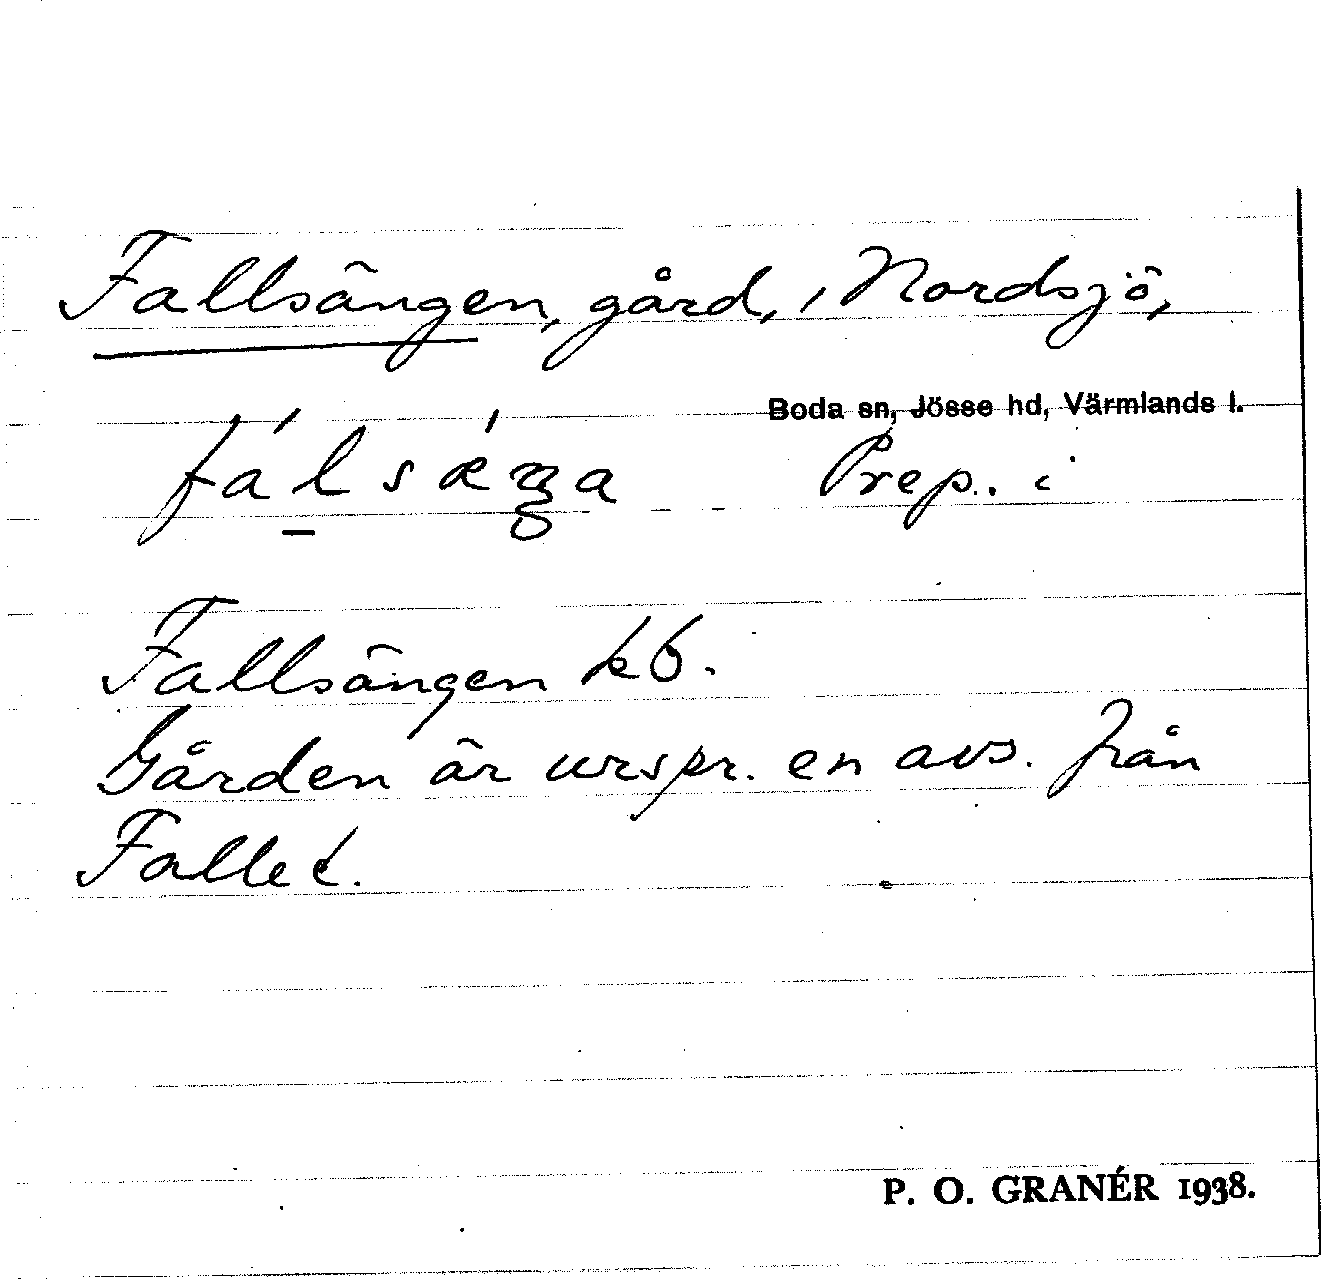 Fallsängen, gård, i Nordsjö,
Boda sn, Jösse hd, Värmlands l.
Prep. i
Fallsängen kb.
Gården är urspr. en avs. från
Fallet.
P. O. GRANÉR 1938.